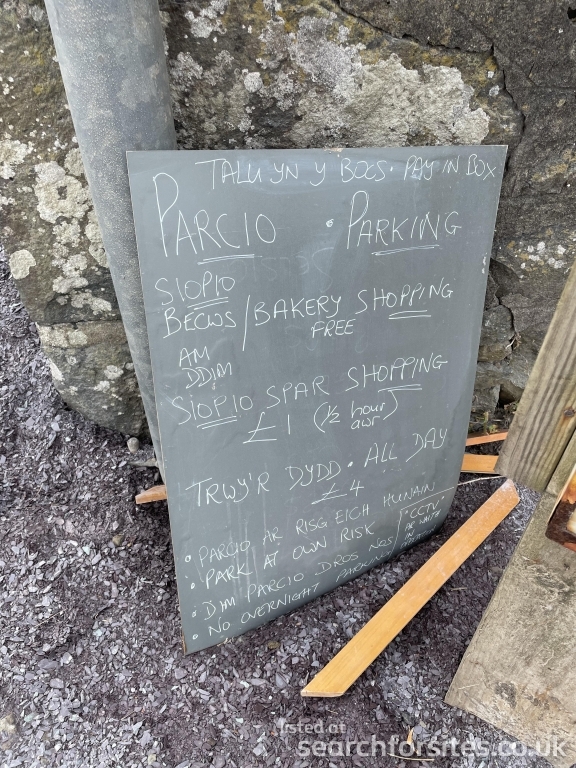 TALU YN Y BOCS · PAY IN BOX
PARCIO · PARKING
SIOPIO
BECWS / BAKERY SHOPPING
FREE
AM
DDIM
SIOPIO SPAR SHOPPING
£1 (½ hour
awr)
TRWY'R DYDD · ALL DAY
£4
· PARCIO AR RISG EICH HUNAIN
· PARK AT OWN RISK
· DIM PARCIO DROS NOS
· NO OVERNIGHT PARKING
"CCTV"
listed at
searchforsites.co.uk